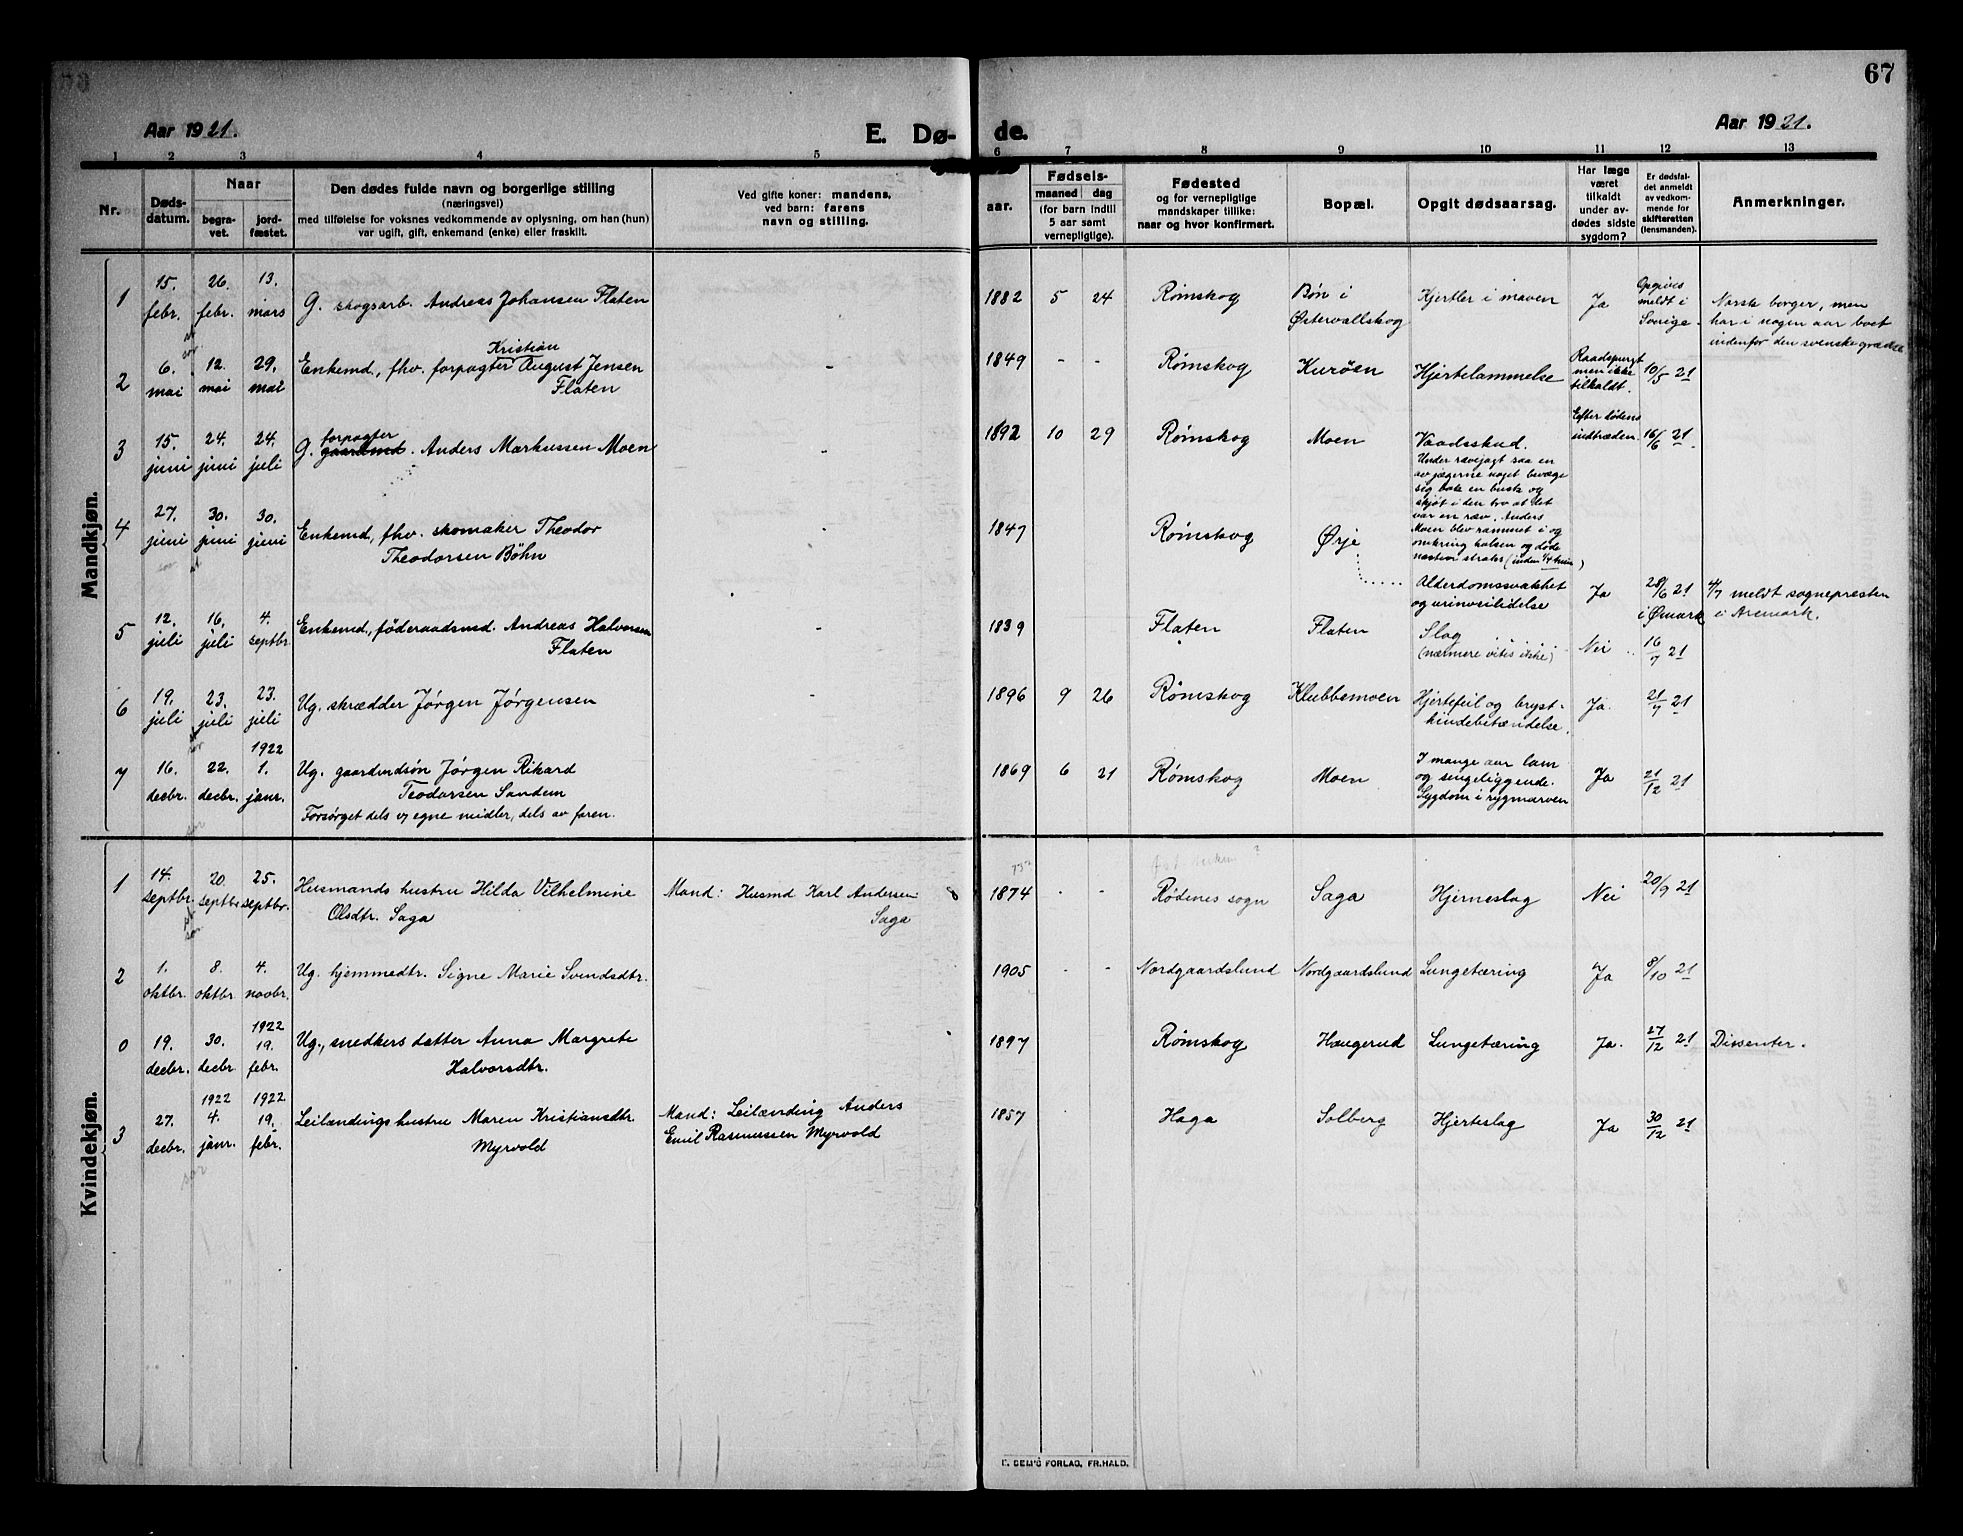 67
Aar 1921.
E. Dø-
de.
Aar 1921.
1 2 3 4 5
6 7 8 9 10 11 12 13
Nr.
Døds-
datum.
Naar
begra-
vet.
jord-
fæstet.
Den dødes fulde navn og borgerlige stilling
(næringsvei)
med tilføielse for voksnes vedkommende av oplysning, om han (hun)
var ugift, gift, enkemand (enke) eller fraskilt.
Ved gifte koner: mandens,
ved barn: farens
navn og stilling.
aar.
Fødsels-
maaned dag
(for barn indtil
5 aar samt
vernepligtige).
Fødested
og for vernepligtige
mandskaper tillike:
naar og hvor konfirmert.
Bopæl.
Opgit dødsaarsag.
Har læge
været
tilkaldt
under av-
dødes sidste
sygdom?
Er dødsfal-
det anmeldt
av vedkom-
mende for
skifteretten
(lensmanden).
Anmerkninger.
Mandkjøn.
1
15. febr.
26. febr.
13. mars
G. skogsarb. Andreas Johansen Flaten
1882 5 24
Rømskog
Bøn i
Østervallskog
Kjertler i maven
Ja
Opgives
meldt i
Sverige
Norsk borger, men
har i nogen aar boet
indenfor den svenske grændse
2
6. mai
12. mai
29. mai
Kristian
Enkemd, fhv. forpagter August Jensen
Flaten
-
1849 - -
Rømskog
Kurøen
Hjertelammelse
Raadspurgt
men ikke
tilkaldt.
10/5 21
3
15. juni
24. juni
24. juli
forpagter
G. gaardmd. Anders Markussen Moen
-
1892 10 29
Rømskog
Moen
Vaadeskud.
Under rævejagt saa en
av jægerne noget bevæge
sig bak en busk og
skjøt i den tro at det
var en ræv. Anders
Moen blev rammet i og
omkring halsen og døde
næsten straks (inden 1/4 time)
Efter døden
indtræden.
16/6 21
4
27. juni
30. juni
30. juni
Enkemd, fhv. skomaker Theodor
Theodorsen Bøhn
-
1847
Rømskog
Ørje
Alderdomssvakhet
og urinveislidelse
Ja
28/6 21
i Ømark
4/7 meldt sognepresten
i Aremark.
5
12. juli
16. juli
4. septbr.
Enkemd, føderaadsmd. Andreas Halvorsen
Flaten
-
1839
Flaten
Flaten
Slag
(nærmere vites ikke)
Nei
16/7 21
6
19. juli
23. juli
23. juli
Ug. skrædder Jørgen Jørgensen
-
1896 9 26
Rømskog
Klubbemoen
Hjertefeil og bryst-
hindebetændelse.
Ja.
21/7 21
7
16. decbr.
22. decbr.
1922
1. janr.
Ug. gaardmdsøn Jørgen Rikard
Teodorsen Sandem
Forsørget dels v egne midler, dels av faren.
1869 6 21
Rømskog
Moen
I mange aar lam
og sengeliggende.
Sygdom i rygmarven
Ja
21/12 21
Kvindekjøn.
1
14. septbr.
20. septbr.
25. septbr.
Husmands hustru Hilda Vilhelmine
Olsdtr. Saga
Mand: Husmd Karl Andersen
Saga
8
1874 - -
Rødenes sogn
Saga
Hjerneslag
Nei
20/9 21
2
1. oktbr.
8. oktbr.
4. novbr.
Ug. hjemmedtr. Signe Marie Svendsdtr.
1905 - -
Nordgaardslund
Nordgaardslund
Lungetæring
Ja
8/10 21
0
19. decbr.
30. decbr.
1922
19. febr.
Ug., snedkers datter Anna Margrete
Halvorsdtr.
1897
Rømskog
Haugerud
Lungetæring
Ja.
27/12 21
Dissenter.
3
27. decbr.
1922
4. janr.
1922
19. febr.
Leilændings hustru Maren Kristiansdtr.
Myrvold
Mand: Leilænding Anders
Emil Rasmussen Myrvold
1857
Haga
Solberg
Hjerteslag
Ja
30/12 21
FORLAG, FR.HALD.